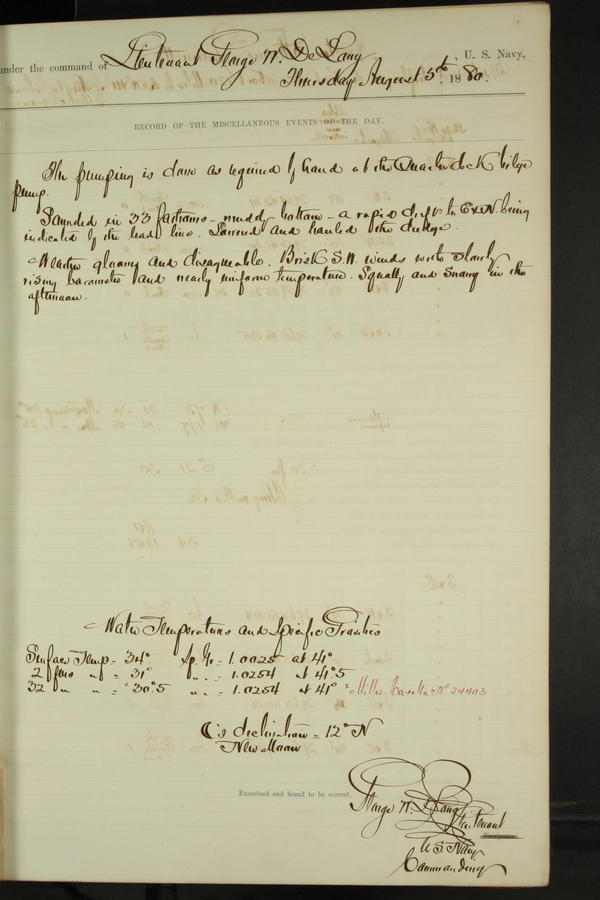 under the command of Lieutenant George W. De Long, U. S. Navy,
Thursday August 5th, 1880.
RECORD OF THE MISCELLANEOUS EVENTS OF THE DAY.
The pumping is done as required by hand at the Quarter deck bilge
pump.
Sounded in 33 fathoms - muddy bottom - a rapid drift to ExN. being
indicated by the lead line. Lowered and hauled the dredge.
Weather gloomy and disagreeable. Brisk S.W. winds with slowly
rising barometer and nearly uniform temperature. Squally and Snowy in the
afternoon.
Water Temperatures and Specific Gravities
Surface Temp = 34° Sp. Gr = 1.0025 at 41°
2 fms " " = 31° " " = 1.0254 at 41°.5
32 " " " = 30°.5 " " = 1.0254 at 41° Miller Casella No 24403
☾'s declination = 12° N
New Moon
Examined and found to be correct.
George W. De Long Lieutenant
U.S. Navy
Commanding